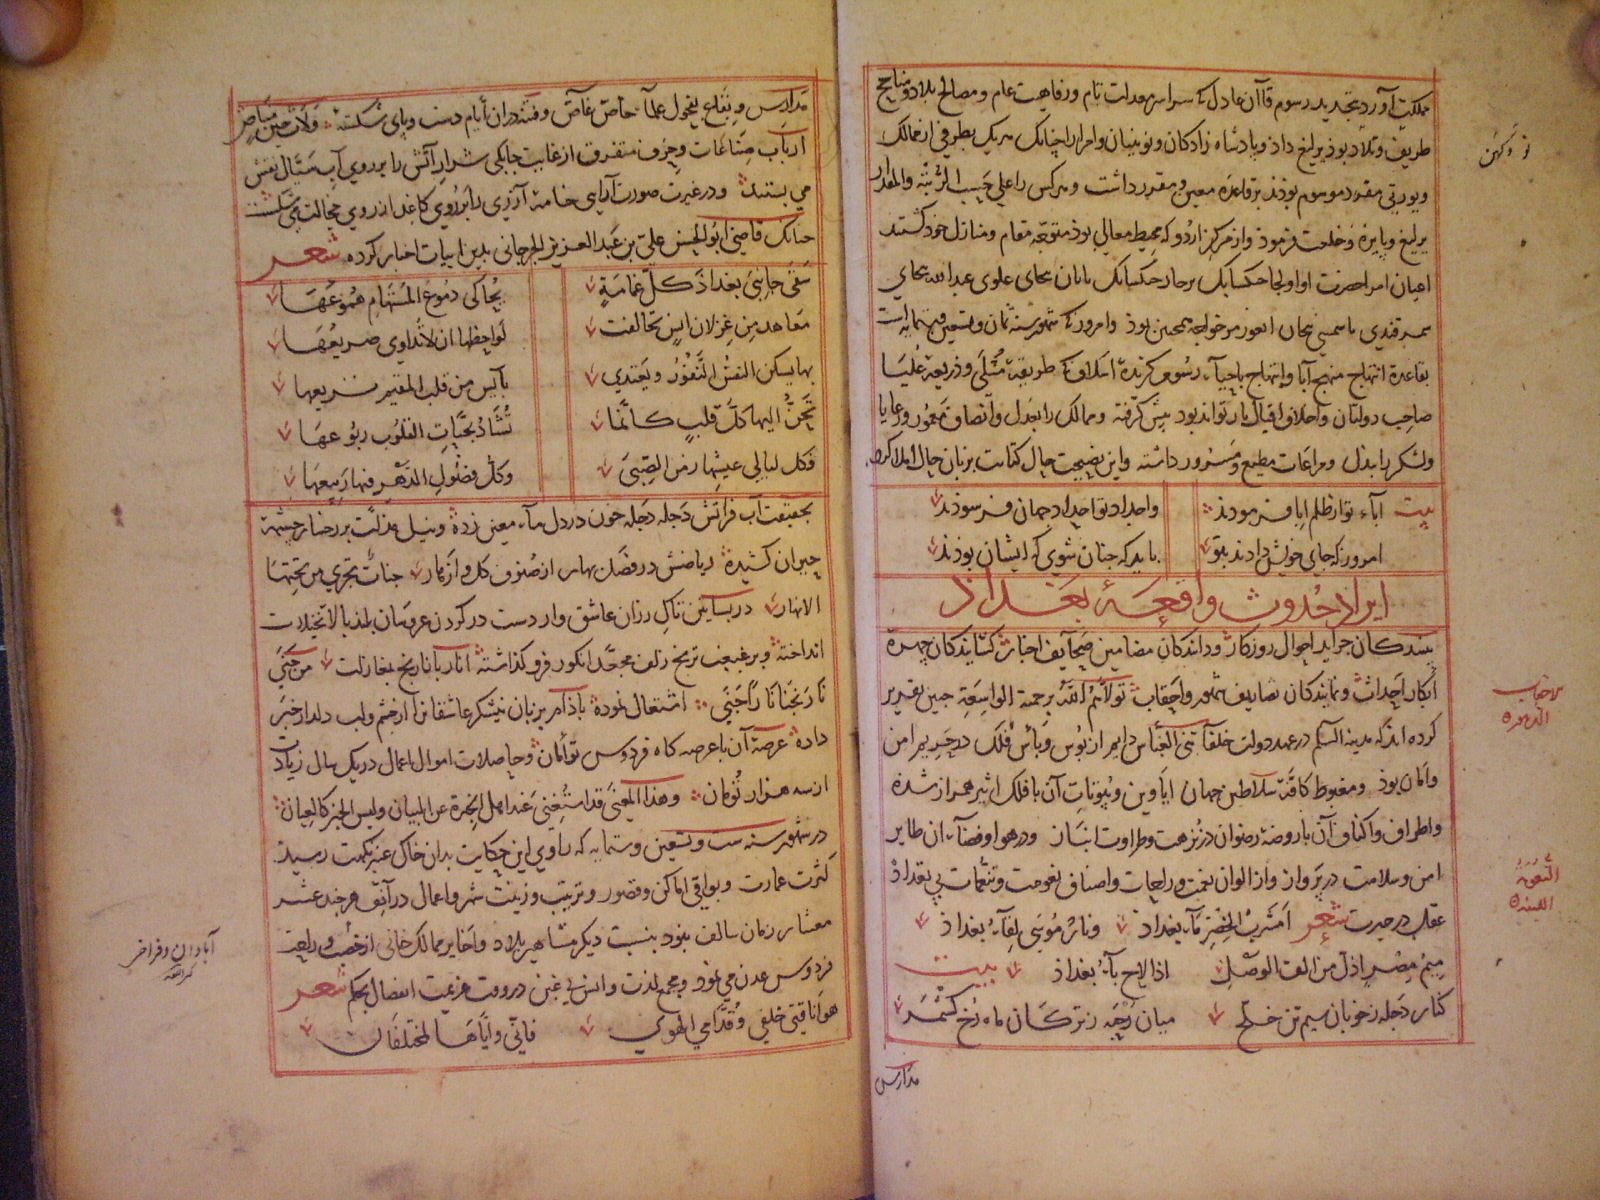 مملکت آورد و تجدید رسوم قاآن عادل که سراسر معدلت تام و رفاهیت عام و مصالح بلاد و مناجح
طریف و تلاد بود یرلیغ داد و پادشاه زادکان و نوینان و امرا را چنانک هر یک بطرفی از ممالک
و یورتی مقرر و موسوم بودند بر قاعده معین و مقرر داشت و هر کس را علی حسب الرتبه والمقدار
یرلیغ و پایزه و خلعت فرمود و از مرکز اردو که محیط معالی بود متوجه مقام و منازل خود کشتند
اعیان امرا حضرت
سمرقندی و امروز که شهور سنه ثمان و تسعین و ستمایه است
بقاعده انتهاج منهج آبا و ابتهاج باحیاء رسوم کزیده اسلاف که طریقة مثلی و ذریعة علیا
صاحب دولتان و اخلاق اقبال یار تواند بود پیش کرفته و ممالک را بعدل و انصاف معمور و رعایا
و لشکر را ببذل و مراعات مطیع و مسرور داشته و این نصیحت حال کتابت بزبان حال املا کرده
بیت آباء تو از ظلم ابا فرمودند واجداد تو اجداد جهان فرسودند
امروز که جای خویش دادند بتو باید که چنان شوی که ایشان بودند
ایراد حدوث واقعهٔ بغداد
بینندکان جراید احوال روزکار و دانندکان مضامین صحایف اخبار کشایندکان چهره
ابکار احداث و نمایندکان تصاریف شهور و احقاب تولاهم الله برحمته الواسعة چنین تقریر
کرده اند که مدینه السلم در عهد دولت خلفاء بنی العباس دایم از بوس و بأس فلک در حریم امن
و امان بود و مغبوط کافة سلاطین جهان ایاوین و بیوتات آن با فلک اثیر همراز شده
و اطراف و اکناف آن با روضه رضوان در نزهت و طراوت انباز و در هوا و فضاء آن طایر
امن و سلامت در پرواز و از الوان نعمت و راحات و اصناف نعومت و تنعمات بی بغداد
عقل در حیرت شعر امشرب الخضر ماء بغداذ و نار موسی لقاء بغداذ
میم مصر اذل من الف الوصل اذا لاح باء بغداذ بیت
کنار دجله ز خوبان سیم تن خلخ میان رحبه ز ترکان ماه رخ کشمر
مدارس
نو و کهن
مدارس و بقاع بفحول علماء خاص غاص و فتنه دران ایام دست و پای شکسته
ارباب صناعات و حرف متفرق از غایت چابکی شرار آتش را بر روی آب سیال نقش
می بستند و در غیرت صورت آرایی خامه آزری را بر روی کاغد از روی خجالت می شکستند
چنانک قاضی ابوالحسن علی بن عبد العزیز الجرجانی بدین ابیات اخبار کرده شعر
سقی جانبی بغداذ کل غمامة یحاکی دموع المستهام هموعها
معاهد من غزلان انس تحالفت لواحظها ان لا تداوی صریعها
بها یسکن النفس النفور و یغتدی بآنس من قلب المقیم نزیعها
تحن الیها کل قلب کانما تشاد بحبات القلوب ربوعها
فکل لیالی عیشها زمن الصبی وکل فصول الدهر فیها ربیعها
بحقیقت آب فراتش دجله دجله خون در دل ماء معین زده و نیل مذلت بر رخسار چشمهٔ
حیوان کشیده ریاضش در فضل بهار از صنوف کل و ازهار جنات تجری من تحتها
الانهار در بساتین تاک رزان عاشق وار دست در کردن عروسان بلند بالا نخیلات
انداخته و بر غبغب ترنج زلف مجعد انکور فرو کذاشته انار با نارنج بمغازلت من جنی
نارنجنا نارا جنی اشتغال نموده باذام بزبان نیشکر عاشقانرا از چشم و لب دلدار خبر
داده عرصه آن با عرصه کاه فردوس توأمان و حاصلات اموال اعمال در یک سال زیادت
از سه هزار تومان و هذا المعنی قد استغنی عند اهل الخبرة عن البیان ولیس الخبر کالعیان
در شهور سنه ست و تسعین و ستمایه که راوی این حکایت بدان خاک عنبر نکهت رسید
کثرت عمارت و بواقی اماکن و قصور و ترتیب و زینت شهر و اعمال در آنوقت هر چند عشر
معشار زمان سالف نبود بنسبت دیکر مشاهیر بلاد و اخایر ممالک خانی از خصب و راحت
فردوس عدن می نمود و مجمع لذت و انس بی غبن در وقت عزیمت انفصال بحکم شعر
هوا ناقتی خلفی و قدامی الهوی فانی و ایاها لمختلفان
آبادان و فراخ